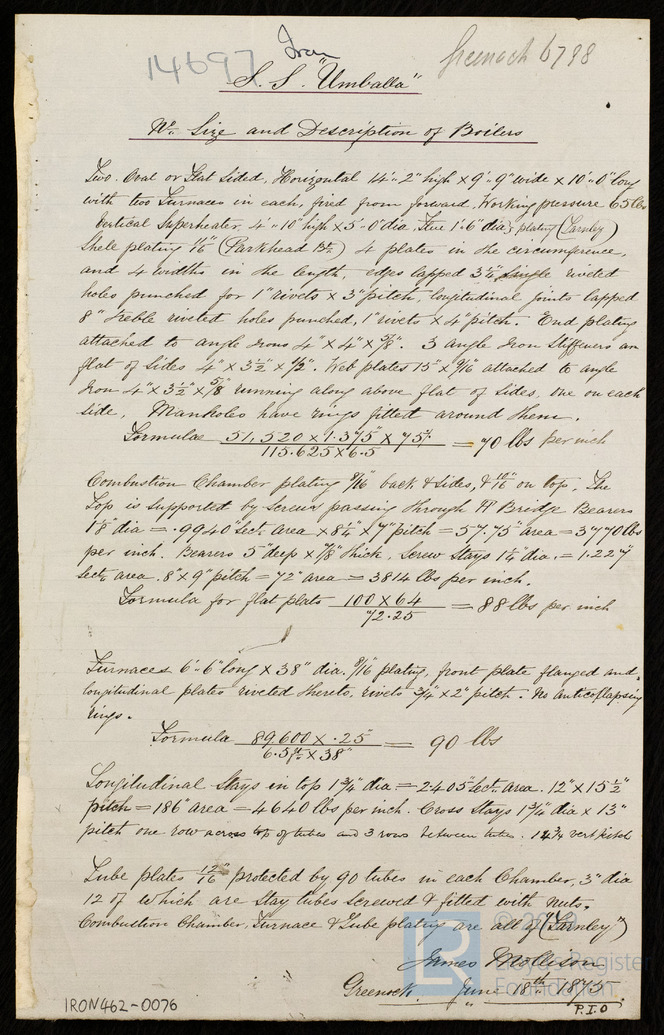 14697
Iron
Greenock 6798
S. S. "Umballa"
No. Size and Description of Boilers
Two. Oval or Flat Sided, Horizontal 14'-2" high × 9'-9" wide × 10'-0" long
with two Furnaces in each, fired from forward. Working pressure 65 lbs
Vertical Superheater, 4'-10" high × 5'-0" dia, Flue 1'-6" dia, plating (Farnley)
Shell plating 11/16" (Parkhead Bt.) 4 plates in the circumference,
and 4 widths in the length, edges lapped 3¼" single riveted
holes punched for 1" rivets × 3" pitch, longitudinal joints lapped
8" treble riveted holes punched, 1" rivets × 4" pitch. End plating
attached to angle Irons 4" × 4" × 5/8". 3 angle Iron Stiffeners on
flat of sides 4" × 3½" × ½". Web plates 15" × 9/16 attached to angle
Iron 4" × 3½" × 5/8" running along above flat of sides, one on each
side, Manholes have rings fitted around them.
Formulae 51,520 × 1.375" × 75% / 115.625 × 6.5 = 70 lbs per inch
Combustion Chamber plating 9/16 back & sides, & 10/16" on top. The
top is supported by screws passing through 17 Bridge Bearers
1 1/8" dia = .9940" sect. area × 8¼" × 7" pitch = 57.75" area = 3770 lbs
per inch. Bearers 5" deep × 7/8" thick. Screw Stays 1¼" dia. = 1.227"
sect. area. 8" × 9" pitch = 72" area = 3814 lbs per inch.
Formula for flat plate 100 × 64 / 72.25 = 88 lbs per inch
Furnaces 6'-6" long × 38" dia. 9/16 plating, front plate flanged and
longitudinal plates riveted thereto, rivets ¾" × 2" pitch. No anticollapsing
rings.
Formula 89600 × .25" / 6.5 ft × 38" = 90 lbs
Longitudinal Stays in top 1¾" dia = 2.405" sect. area. 12" × 15½"
pitch = 186" area = 4640 lbs per inch. Cross Stays 1¾" dia × 13"
pitch one row across top of tubes and 3 rows between tubes. 14¾ vert pitch
Tube plates 12/16" protected by 90 tubes in each Chamber, 3" dia
12 of which are Stay tubes screwed & fitted with nuts.
Combustion Chamber, Furnace & Tube plating are all of (Farnley)
James Mollison
Greenock June 18th 1875.
P.T.O
LR
© 2019
Lloyd's Register
Foundation
IRON462-0076